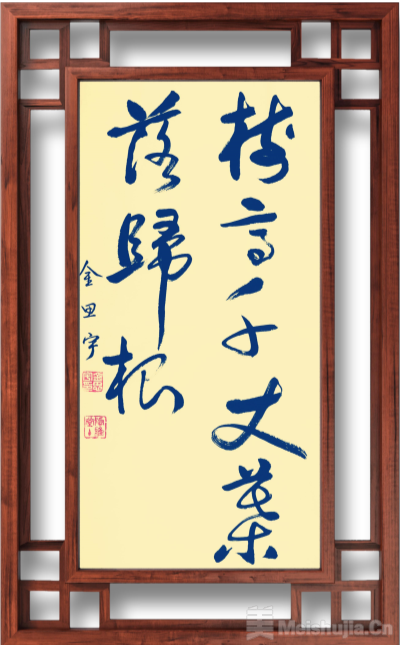 树高千丈葉
落歸根
金思宇
美 Meishujia.Cn